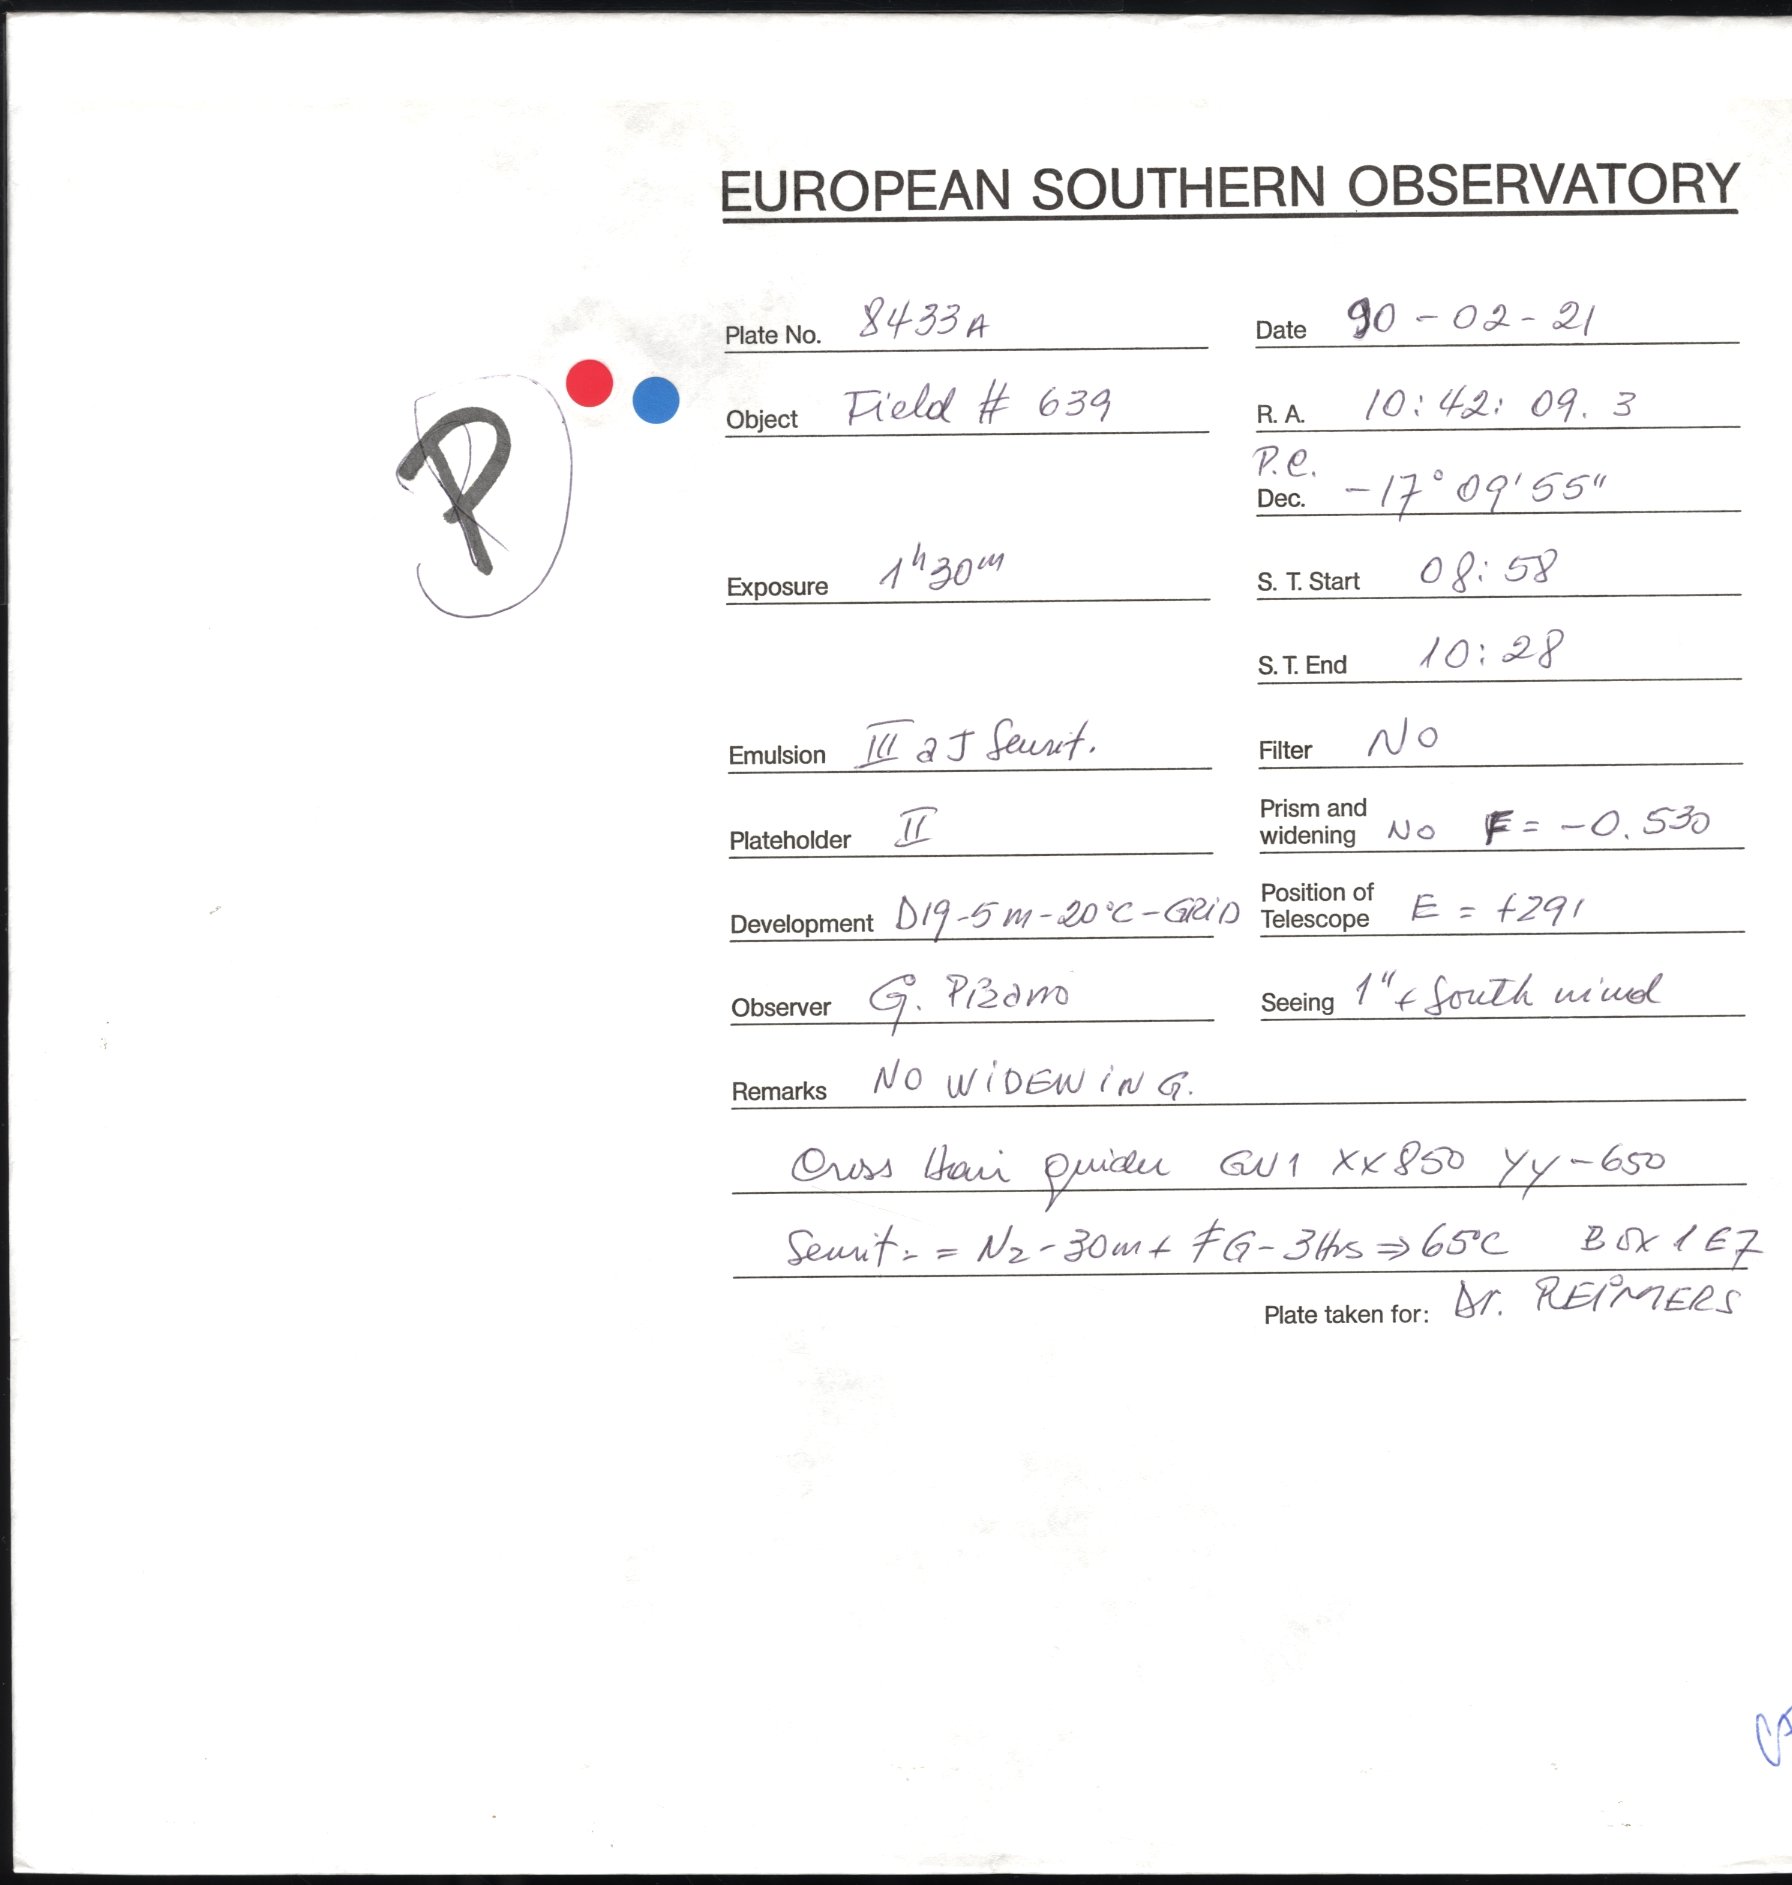 EUROPEAN SOUTHERN OBSERVATORY
Plate No. 8433A Date 90-02-21
P
Object Field # 639 R. A. 10:42:09.3
P.C.
Dec. -17°09'55"
Exposure 1h30m S. T. Start 08:58
S. T. End 10:28
Emulsion III a J Sensit. Filter No
Plateholder II Prism and widening No F = -0.530
Development D19-5m-20°C-GRiD Position of Telescope E = +291
Observer G. Pizarro Seeing 1" + South wind
Remarks NO WiDENiNG.
Cross Hair guider GV1 XX850 YY-650
Sensit.= = N2-30m+ FG-3Hrs⇒65°C BOX 1E7
Plate taken for: Dr. REiMERS